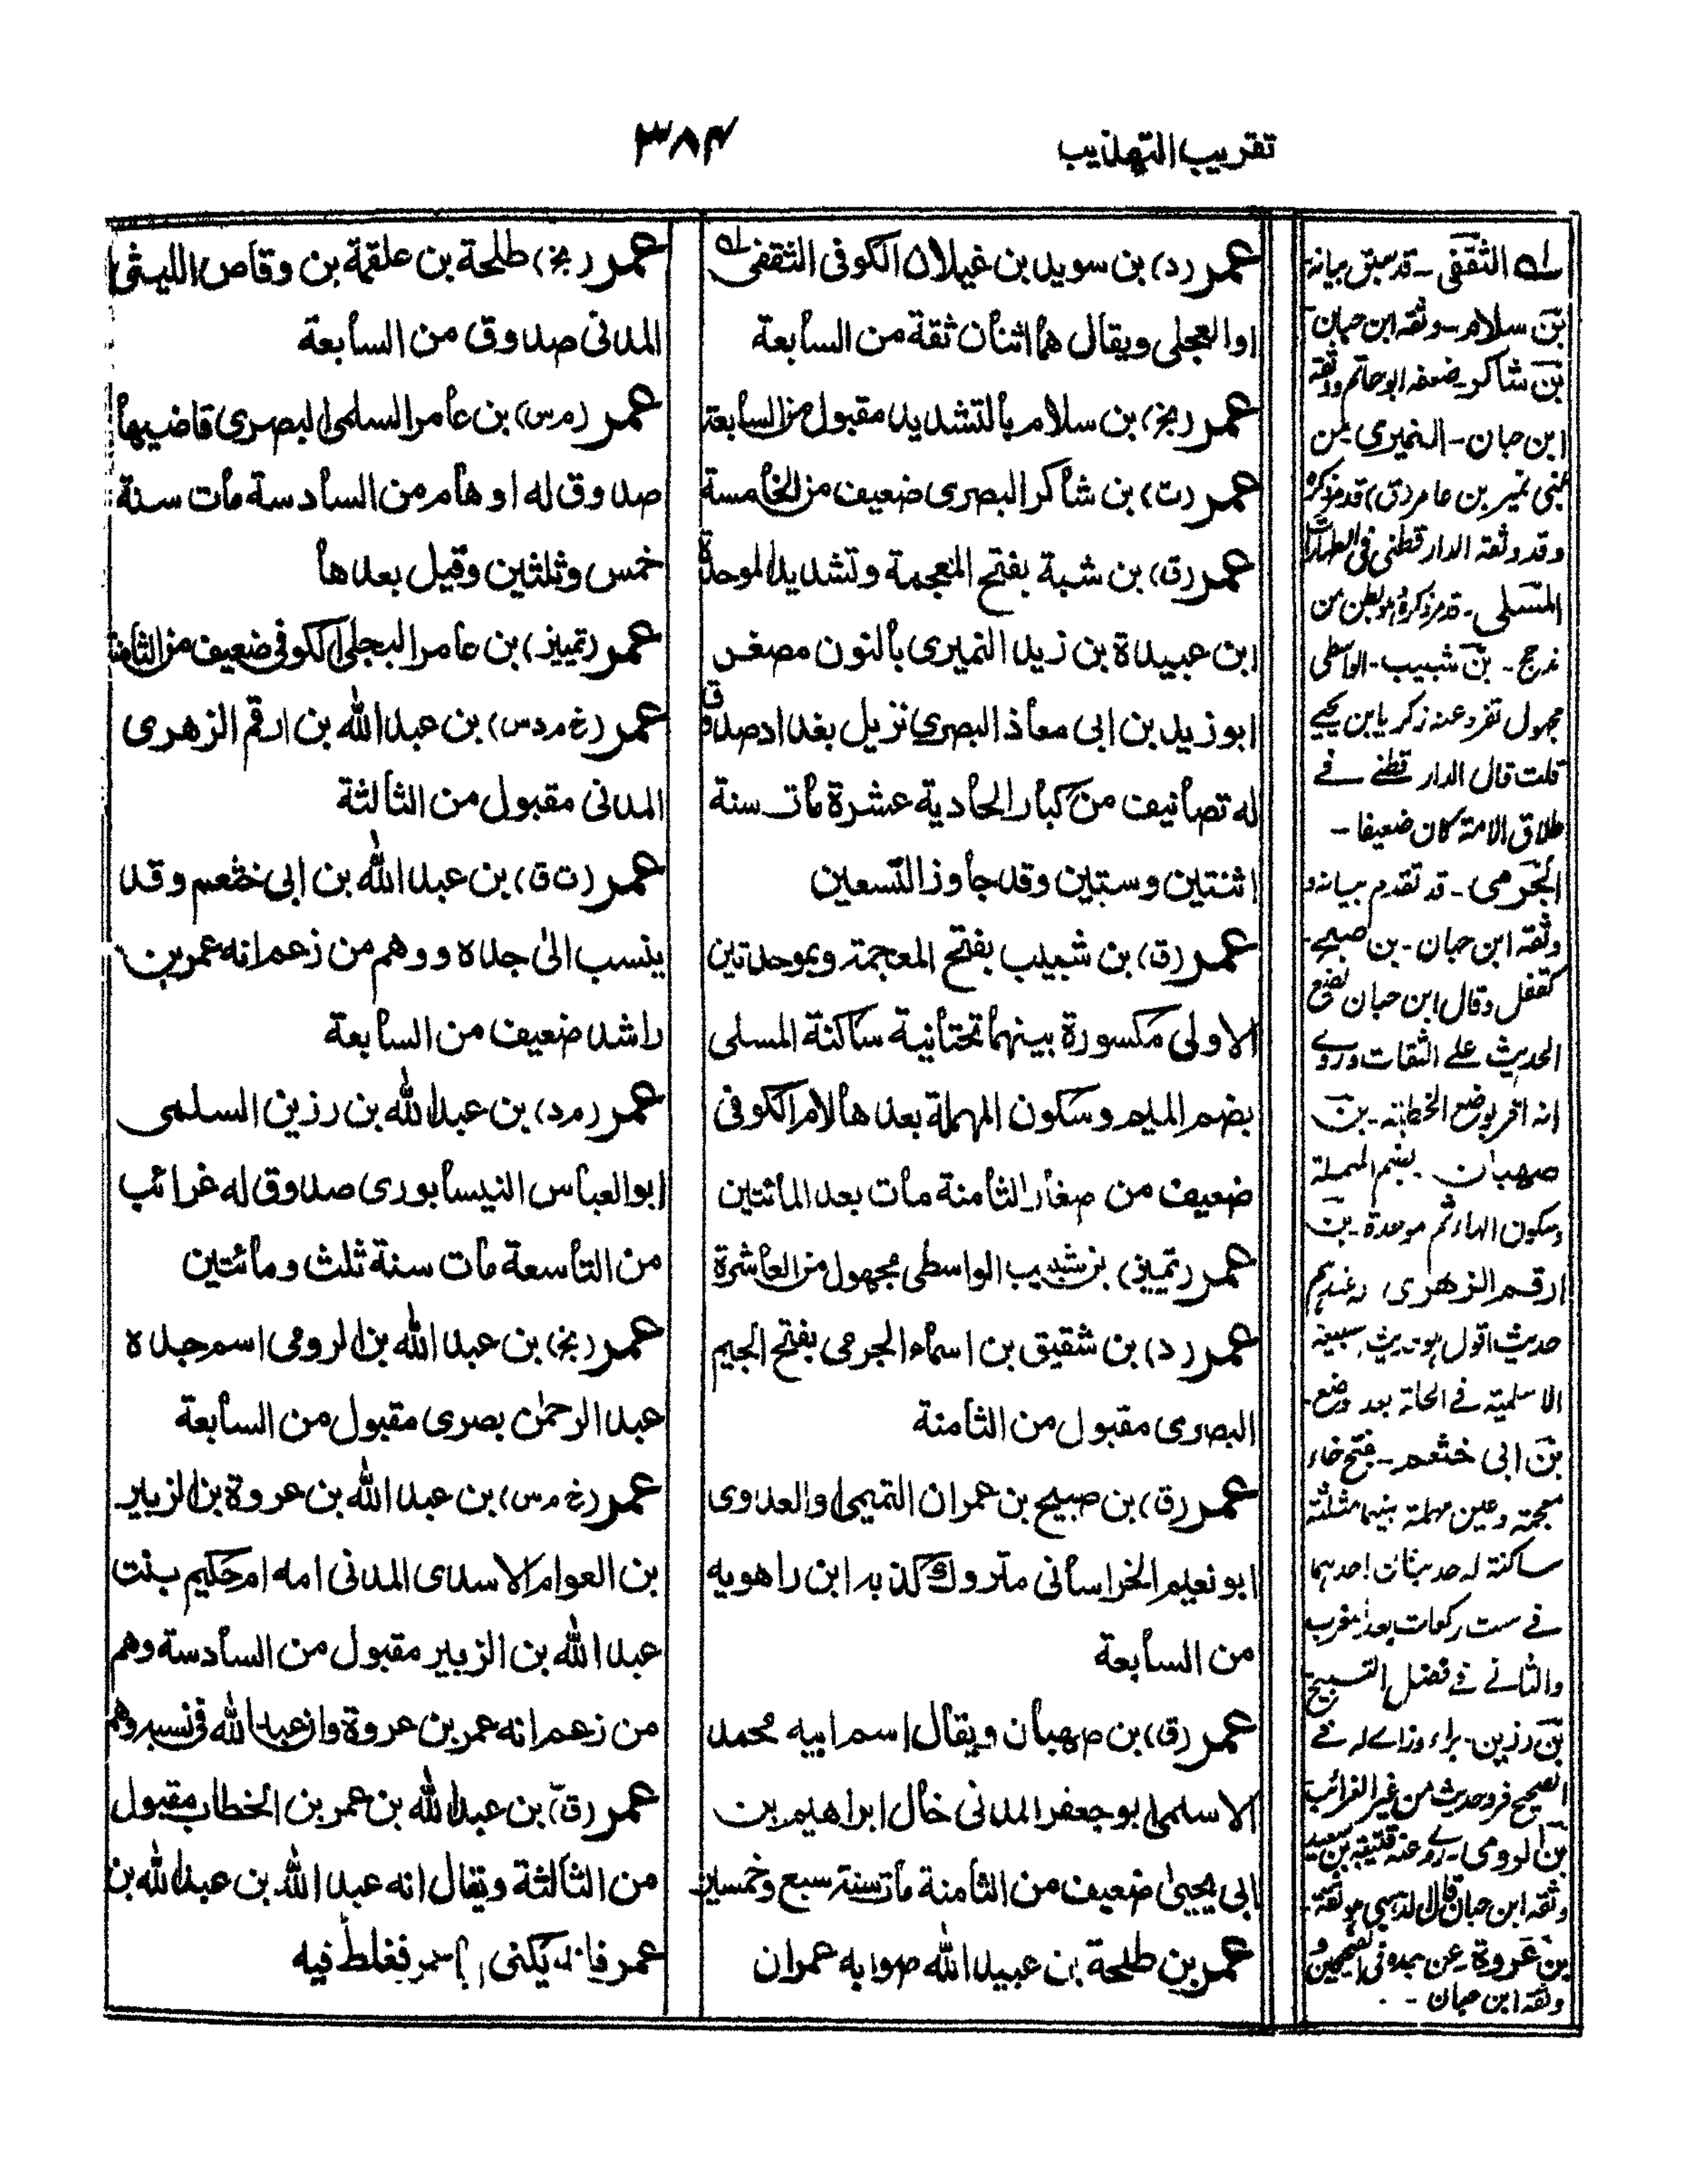 تقريب التهذيب
٣٨٤
عمر (د) بن سويد بن غيلان الكوفى الثقفى له
او العجلى ويقال هما اثنان ثقة من السابعة
عمر (بخ) بن سلام بالتشديد مقبول من السابعة
عمر (ت) بن شاكر البصرى ضعيف من الخامسة
عمر (ق) بن شبة بفتح المعجمة وتشديد الموحدة
ابن عبيدة بن زيد النميرى بالنون مصغر
ابو زيد بن ابى معاذ البصرى نزيل بغداد صدوق
له تصانيف من كبار الحادية عشرة مات سنة
اثنتين وستين وقد جاوز التسعين
عمر (ق) بن شبيب بفتح المعجمة وبموحدتين
الاولى مكسورة بينهما تحتانية ساكنة المسلى
بضم الميم وسكون المهملة بعدها لام الكوفى
ضعيف من صغار الثامنة مات بعد المائتين
عمر (تمييز) بن شبيب الواسطى مجهول من العاشرة
عمر (د) بن شقيق بن اسماء الجرمى بفتح الجيم
البصرى مقبول من الثامنة
عمر (ق) بن صبيح بن عمران التميمى او العدوى
ابو نعيم الخراسانى متروك كذبه ابن راهويه
من السابعة
عمر (ق) بن صهبان ويقال اسم ابيه محمد
الاسلمى ابو جعفر المدنى خال ابراهيم بن
ابى يحيى ضعيف من الثامنة مات سنة سبع وخمسين
عمر بن طلحة بن عبيد الله صوابه عمران
عمر (بخ) طلحة بن علقمة بن وقاص الليثى
المدنى صدوق من السابعة
عمر (م س) بن عامر السلمى البصرى قاضيها
صدوق له اوهام من السادسة مات سنة
خمس وثلثين وقيل بعدها
عمر (تمييز) بن عامر البجلى الكوفى ضعيف من الثامنة
عمر (خ م د س) بن عبد الله بن ارقم الزهرى
المدنى مقبول من الثالثة
عمر (ت ق) بن عبد الله بن ابى خثعم وقد
ينسب الى جده ووهم من زعم انه عمر بن
راشد ضعيف من السابعة
عمر (م د) بن عبد الله بن رزين السلمى
ابو العباس النيسابورى صدوق له غرائب
من التاسعة مات سنة ثلث ومائتين
عمر (بخ) بن عبد الله بن الرومى اسم جده
عبد الرحمن بصرى مقبول من السابعة
عمر (خ م س) بن عبد الله بن عروة بن الزبير
بن العوام الاسدى المدنى امه ام حكيم بنت
عبد الله بن الزبير مقبول من السادسة وهم
من زعم انه عمر بن عروة وان عبد الله فى نسبه وهم
عمر (ق) بن عبد الله بن عمر بن الخطاب مقبول
من الثالثة ويقال انه عبد الله بن عبد الله بن
عمر فانه يكنى فغلط فيه
له الثقفى - قد سبق بيانه
بن سلام - وثقه ابن حبان
بن شاكر - ضعفه ابو حاتم ووثقه
ابن حبان - النميرى
بنى نمير بن عامر (ق) قد مر ذكره
وقد وثقه الدارقطنى فى
المسلى - قد مر ذكره وهو بطن من
مذحج - بن شبيب - الواسطى
مجهول تفرد عنه زكريا بن يحيے
قلت قال الدار قطنے فے
طلاق الامة كان ضعيفا -
الجرمى - قد تقدم بيانه و
وثقه ابن حبان - بن صبيح -
وقال ابن حبان يضع
الحديث على الثقات وروے
انه اقر بوضع الخطبة - بن
صهبان - بضم المهملة
وسكون الهاء ثم موحدة - بن
ارقم الزهرى
حديث اقول هو حديث سبيعة
الاسلمية فے
بن ابى خثعم - بفتح خاء
معجمة وعين مهملة بينهما مثلثة
ساكنة له حديثان احدهما
فے ست ركعات بعد المغرب
والثانے فے فضل التسبيح
بن رزين - براء وزاے له فے
الصحيح فرد حديث من غير الغرائب
بن الرومى - روے عنه قتيبة بن سعيد
وثقه ابن حبان قال الذهبى هو ثقة -
بن عروة - عن جده فى الصحيحين و
وثقه ابن حبان -